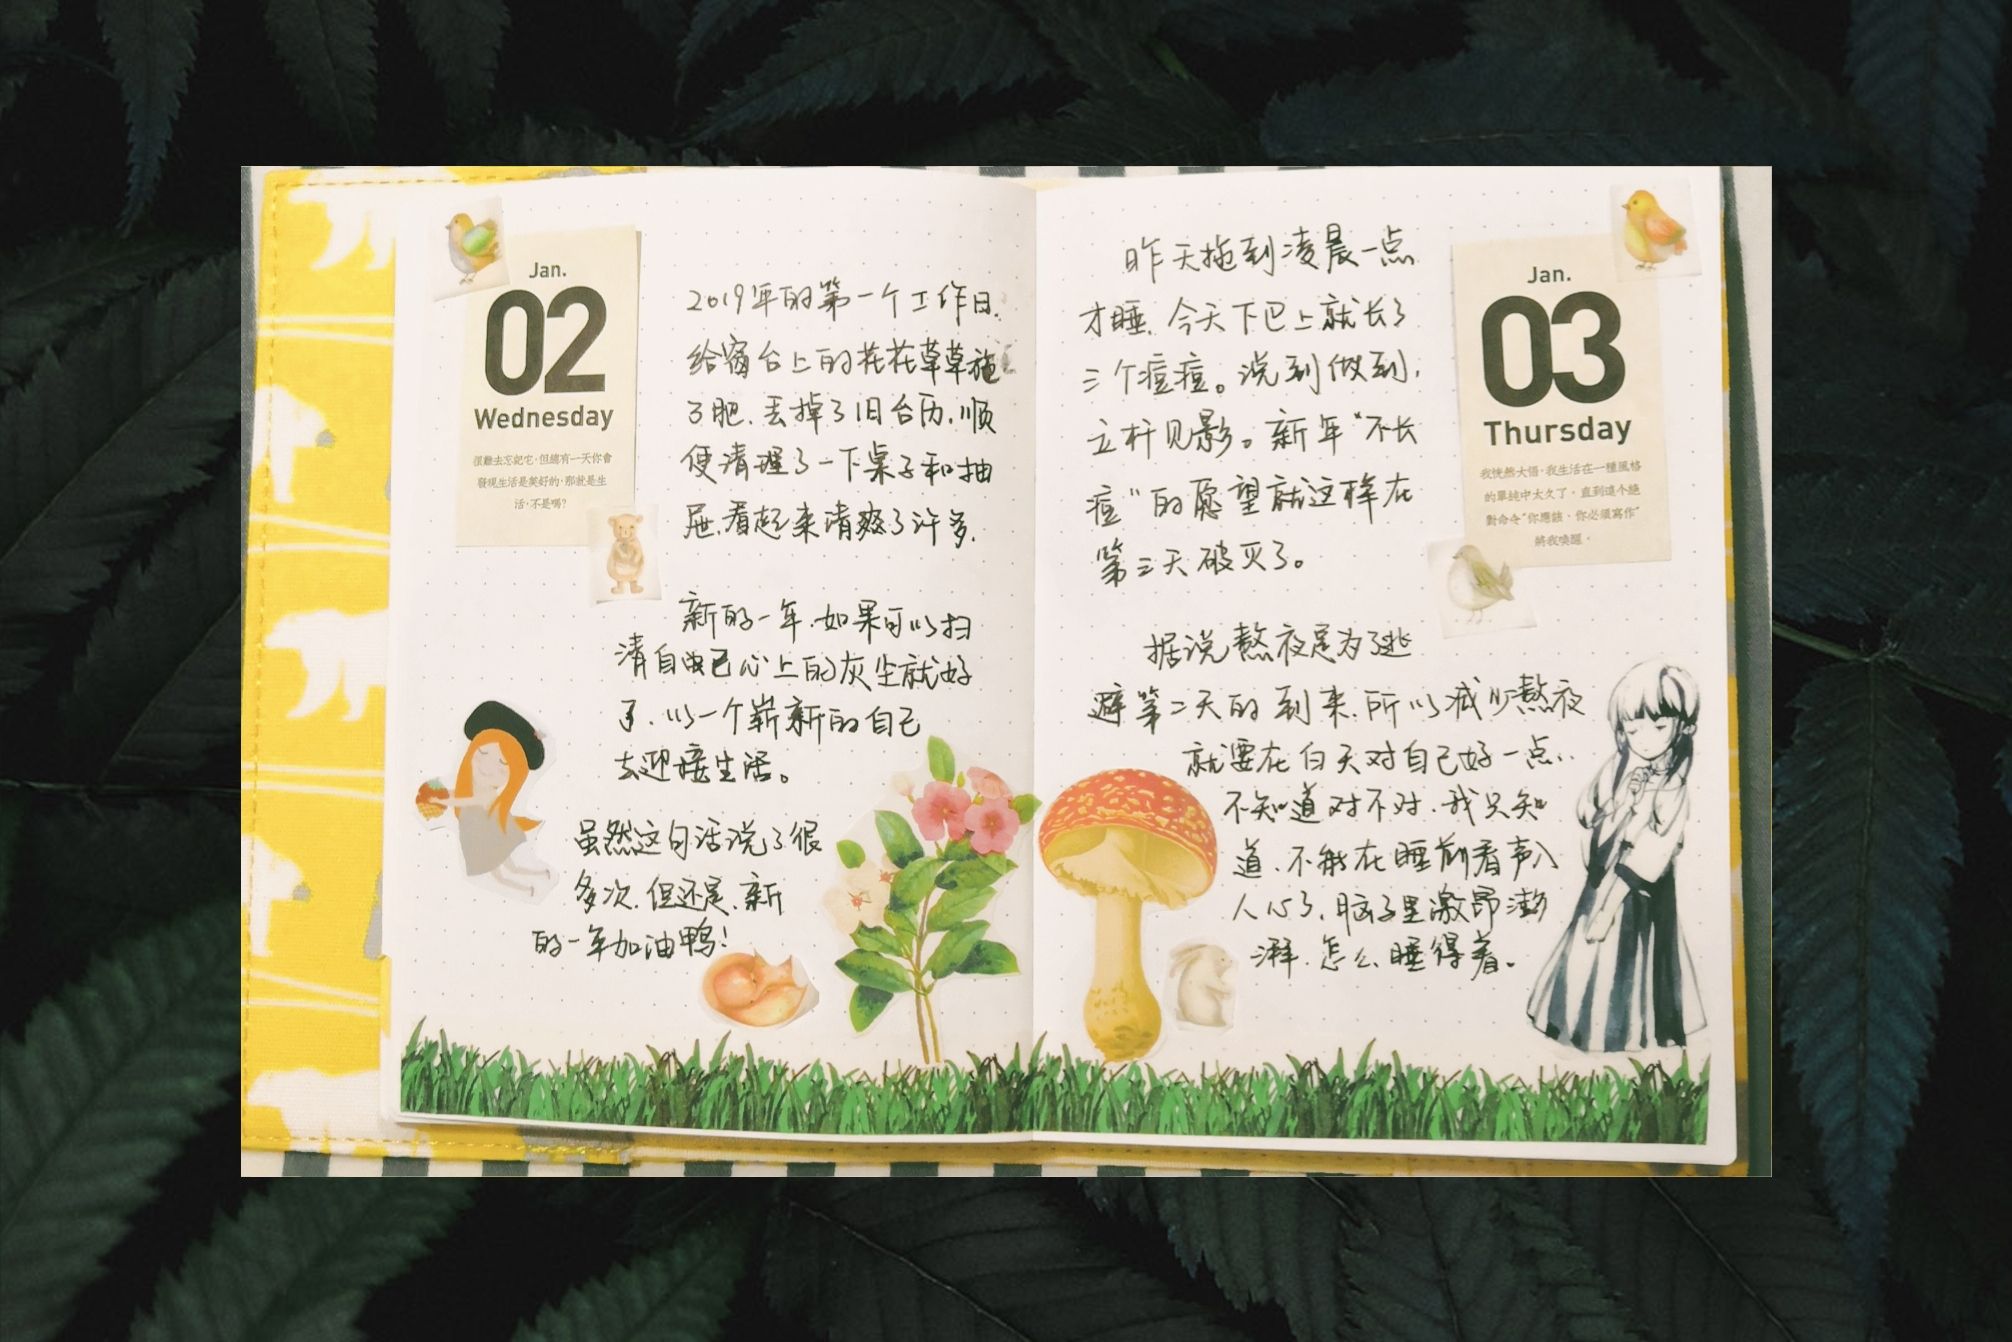 Jan.
02
Wednesday
很難去忘記它·但總有一天你會
發現生活是美好的·那就是生
活·不是嗎?
2019年的第一个工作日.
给窗台上的花花草草施
了肥.丢掉了旧台历.顺
便清理了一下桌子和抽
屉.看起来清爽了许多.
新的一年.如果可以扫
清自己心上的灰尘就好
了.以一个崭新的自己
去迎接生活。
虽然这句话说了很
多次.但还是.新
的一年加油鸭!
昨天拖到凌晨一点
才睡.今天下巴上就长了
三个痘痘。说到做到,
立杆见影。新年"不长
痘"的愿望就这样在
第三天破灭了。
据说熬夜是为了逃
避第二天的到来.所以减少熬夜
就要在白天对自己好一点..
不知道对不对.我只知
道.不能在睡前看声入
人心了.脑子里激昂澎
湃.怎么睡得着。
Jan.
03
Thursday
我恍然大悟·我生活在一種風格
的單純中太久了·直到這个絕
對命令"你應該·你必須寫作"
將我喚醒·